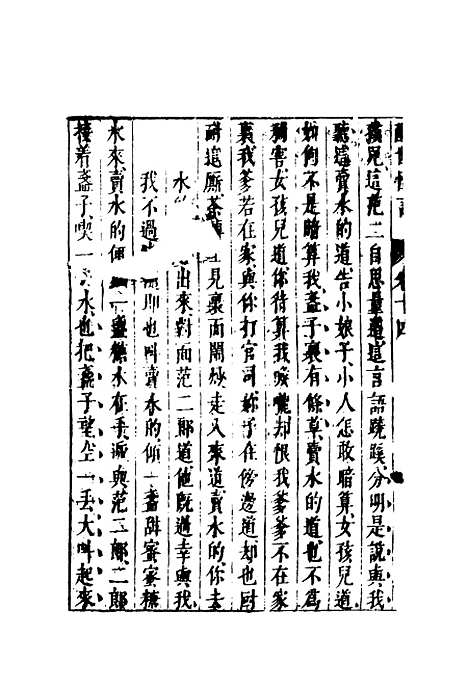 醒世恒言 卷十四
孩兒這范二自思量道這言語蹺蹊分明是說與我
聽這賣水的道告小娘子小人怎敢暗算女孩兒道
如何不是暗算我盞子裏有條草賣水的道也不爲
利害女孩兒道你待算我喉嚨却恨我爹爹不在家
裏我爹若在家與你打官司妳子在傍邊道却也叵
耐這廝茶 見裏面鬧炒走入來道賣水的你去
水 出來對面范二郎道他既過幸與我
我不過 随即也叫賣水的傾一盞甜蜜蜜糖
水來賣水的便 一盞糖水在手遞與范二郎二郎
接着盞子喫一 水也把盞子望空一丢大叫起來